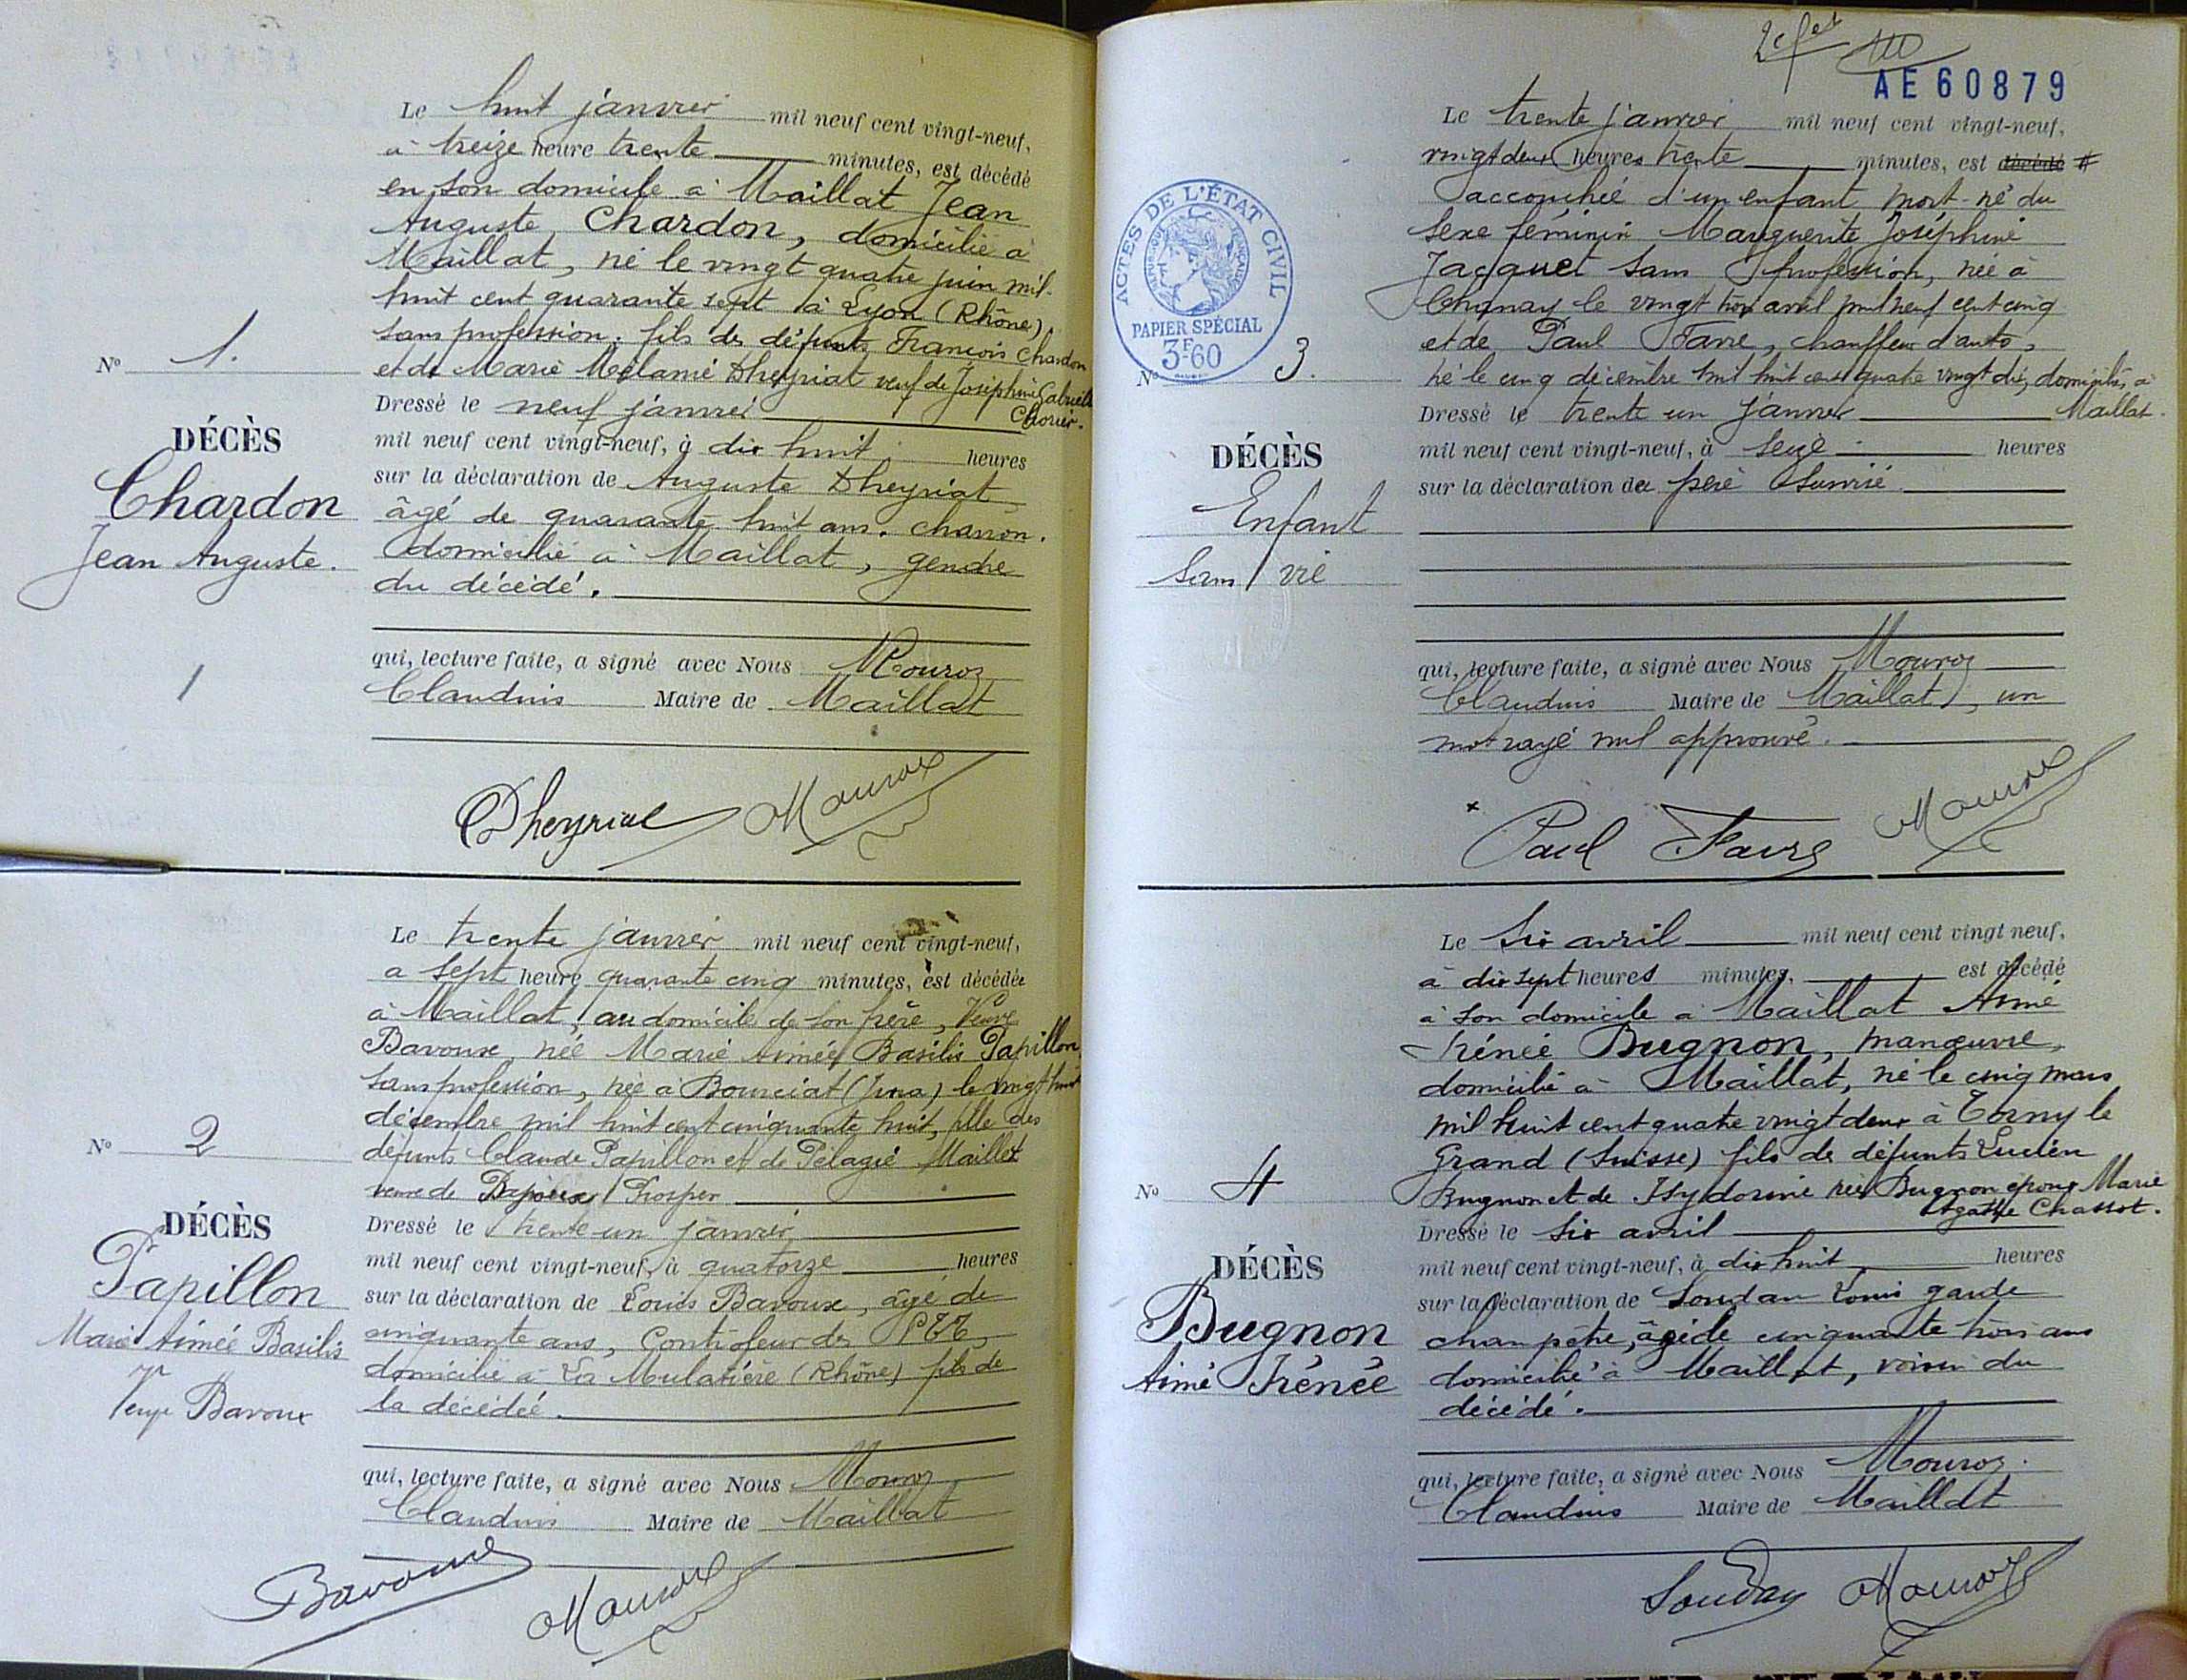 Le huit janvier mil neuf cent vingt-neuf,
à treize heure trente minutes, est décédé
en son domicile à Maillat Jean
Auguste Chardon, domicilié à
Maillat, né le vingt quatre juin mil
huit cent quarante sept à Lyon (Rhône)
sans profession, fils des défunts François Chardon
et de Marie Mélanie Dheyriat veuf de Joséphine Gabrielle
Chorier.
N° 1.
Dressé le neuf janvier
DÉCÈS
Chardon
Jean Auguste.
mil neuf cent vingt-neuf, à dix huit heures
sur la déclaration de Auguste Dheyriat
âgé de quarante huit ans, charron.
domicilié à Maillat, gendre
du décédé.
1
qui, lecture faite, a signé avec Nous Mouroz
Claudius Maire de Maillat
Dheyriat Mouroz
Le trente janvier mil neuf cent vingt-neuf,
a sept heure quarante cinq minutes, est décédée
à Maillat, au domicile de son frère, Veuve
Bavoux née Marie Aimée Basilis Papillon
sans profession, née à Bourciat (Jura) le vingt huit
décembre mil huit cent cinquante huit, fille des
défunts Claude Papillon et de Pélagie Maillet
veuve de Prosper
N° 2
Dressé le trente un janvier
DÉCÈS
Papillon
Marie Aimée Basilis
Veuve Bavoux
mil neuf cent vingt-neuf, à quatorze heures
sur la déclaration de Louis Bavoux, âgé de
cinquante ans, Contrôleur des PTT,
domicilié à La Mulatière (Rhône) fils de
la décédée.
qui, lecture faite, a signé avec Nous Mouroz
Claudius Maire de Maillat
Bavoux Mouroz
2e fet
AE60879
Le trente janvier mil neuf cent vingt-neuf,
vingt deux heures trente minutes, est décédé
accouchée d'un enfant mort-né du
sexe féminin Marguerite Joséphine
Jacquet sans profession, née à
le vingt trois avril mil neuf cent cinq
et de Paul Favre, chauffeur d'auto,
né le cinq décembre mil huit cent quatre vingt dix, domiciliés à
Maillat.
ACTES DE L'ÉTAT CIVIL
RÉPUBLIQUE FRANÇAISE
PAPIER SPÉCIAL
3F.60
N° 3.
Dressé le trente un janvier
DÉCÈS
Enfant
Sans vie
mil neuf cent vingt-neuf, à seize heures
sur la déclaration du père susvisé
qui, lecture faite, a signé avec Nous Mouroz
Claudius Maire de Maillat, un
mot rayé nul approuvé.
Paul Favre Mouroz
Le six avril mil neuf cent vingt neuf,
à dix sept heures minutes, est décédé
à son domicile à Maillat Aimé
Irénée Bugnon, manœuvre,
domicilié à Maillat, né le cinq mars
mil huit cent quatre vingt deux à Torny le
Grand (Suisse) fils de défunts Lucien
Bugnon et de Isydorine née Bugnon époux Marie
Agathe Chassot.
N° 4
Dressé le six avril
DÉCÈS
Bugnon
Aimé Irénée
mil neuf cent vingt-neuf, à dix huit heures
sur la déclaration de Soudan Louis garde
champêtre, âgé de cinquante trois ans
domicilié à Maillat, voisin du
décédé.
qui, lecture faite, a signé avec Nous Mouroz.
Claudius Maire de Maillat
Soudan Mouroz